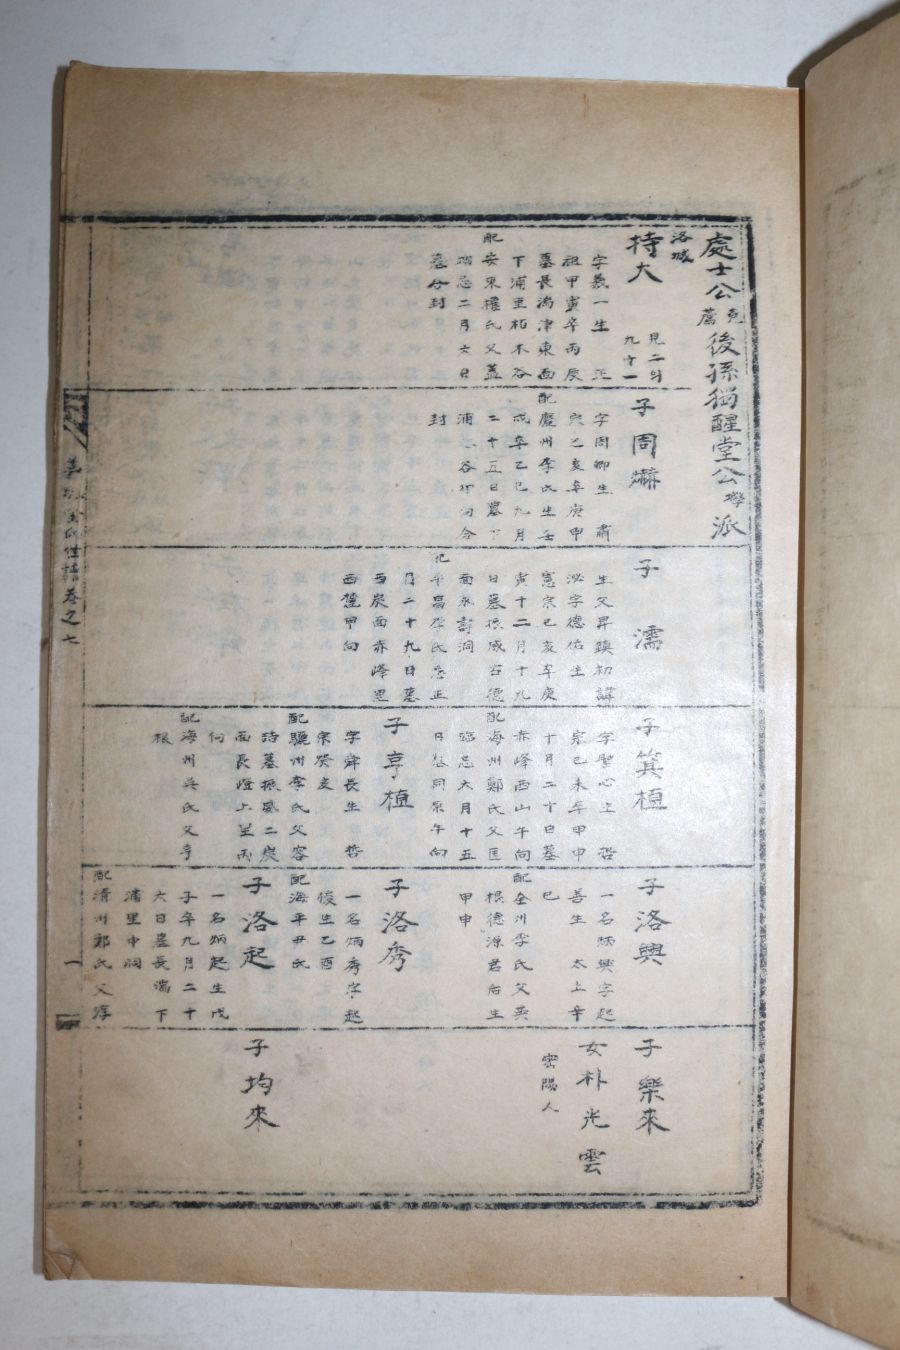 處士公克薦後孫獨醒堂公 派
洛城
持大 見二 九十一
字義一生 正
祖甲寅卒丙辰
墓長湍津東面
下浦里栢木谷
配安東權氏父蓋
臨忌二月六日
墓 封
子周
字周卿生 肅
宗乙亥卒庚申
配慶州李氏生壬
戌卒乙巳九月
二十五日墓下
浦 谷 向合
封
子 濡
生父昇鎮初諱
泌字德佑生
憲宗己亥卒庚
寅十二月十九
日墓振威古德
面永 洞
配平昌李氏忌正
月二十九日墓
西炭面赤峰里
西麓甲向
子箕植
字聖心生 哲
宗己未卒甲申
十月二十日墓
赤峰西山午向
配海州鄭氏父匡
臨忌六月十五
日墓同原午向
子亨植
字舜長生 哲
宗癸亥
配驪州李氏父容
時墓振威二炭
面長燈上里丙
向
配海州吳氏父亨
根
子洛興
一名炳興字起
善生 太上辛
巳
配全州李氏父奐
根德源君后生
甲申
子洛秀
一名炳秀字起
俊生乙酉
配海平尹氏
子洛起
一名炳起生戊
子卒九月二十
六日墓長湍下
浦里中洞
配清州郭氏父淳
子樂來
女朴光雲
密陽人
子均來
金氏世譜卷之七
一